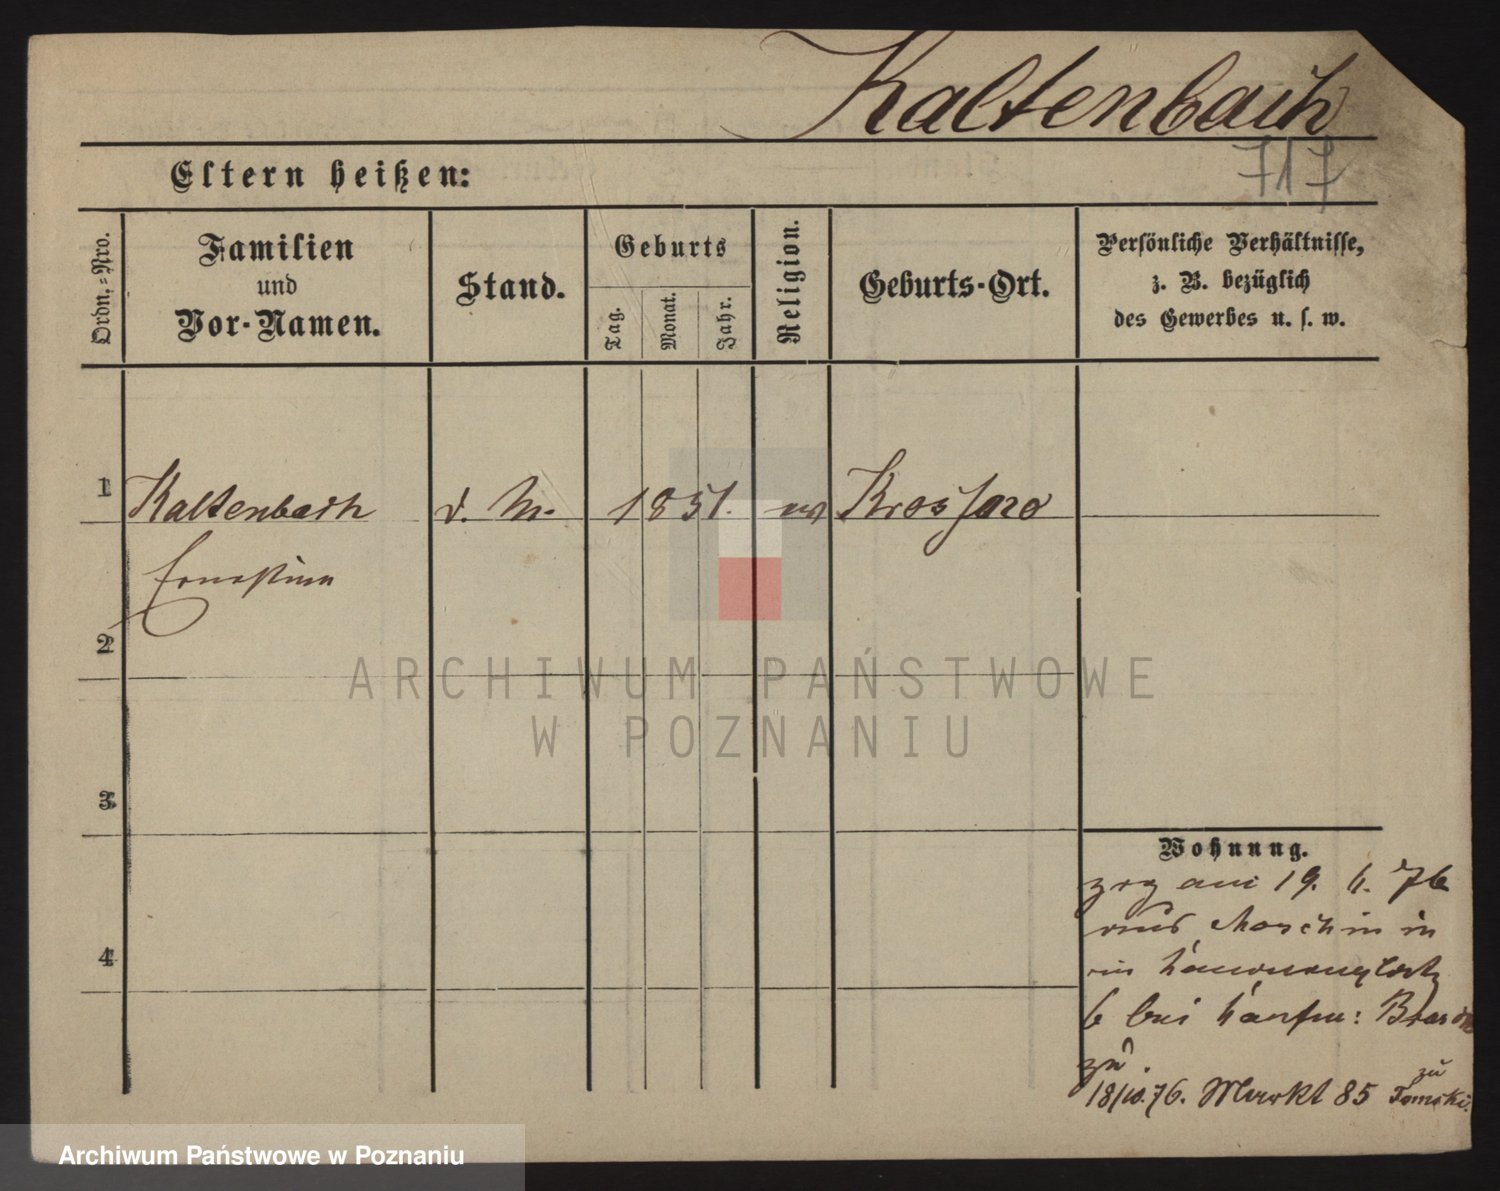 Kaltenbach
717
Eltern heißen:
Ordn.-Nro.
Familien
und
Vor-Namen.
Stand.
Geburts
Tag.
Monat.
Jahr.
Religion.
Geburts-Ort.
Persönliche Verhältnisse,
z. B. bezüglich
des Gewerbes u. s. w.
1 Kaltenbach d. M. 1851. Krosſaro
Ernestine
2
3
4
Wohnung.
zog am 19. 6. 76
aus Moschin in
6 bei
zu.
18/10.76. Markt 85 zu Tomski.
ARCHIWUM PAŃSTWOWE
W POZNANIU
Archiwum Państwowe w Poznaniu